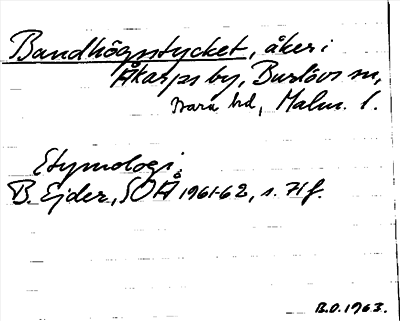 Bandhögstycket, åker i
Åkarps by, Burlövs sn,
Bara hd, Malm. l.
Etymologi.
B. Ejder, SOÅ 1961-62, s. 71 f.
B.O. 1963.